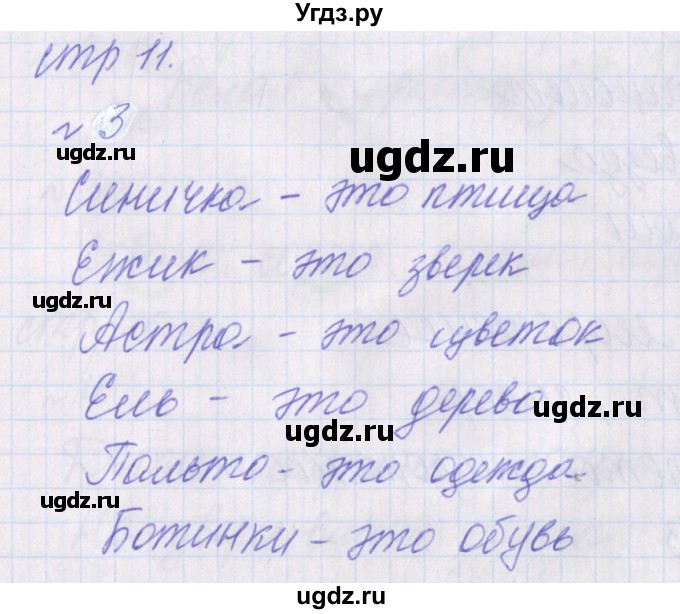 Угдз.ру
стр 11.
№ 3
ugdz.ru
ugdz.ru
Синичка - это птица
Ежик - это зверек
ugdz.ru
Астра - это цветок
Ель - это дерево
ugdz.ru
ugdz.ru
Пальто - это одежда.
ugdz.ru
Ботинки - это обувь
ugdz.ru